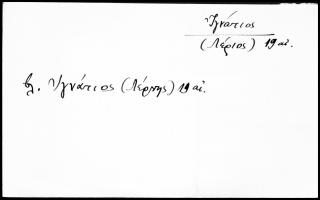 Ἰγνάτιος
(Λέριος) 19 αἰ.
βλ. Ἰγνάτιος (Λέρνης) 19 αἰ.